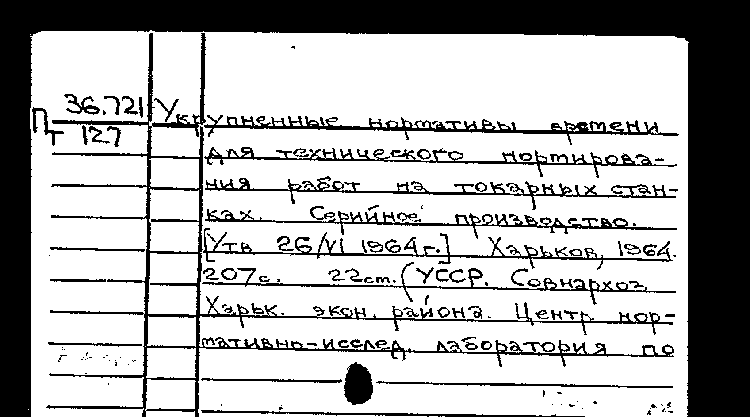 36.721 Укрупненные нормативы времени
Пт 127
для технического нормирова-
ния работ на токарных стан-
ках. Серийное производство.
[Утв 26/VI 1964г.] Харьков, 1964.
207с. 22см. (УССР. Совнархоз
Харьк. экон. района. Центр нор-
мативно-исслед. лаборатория по